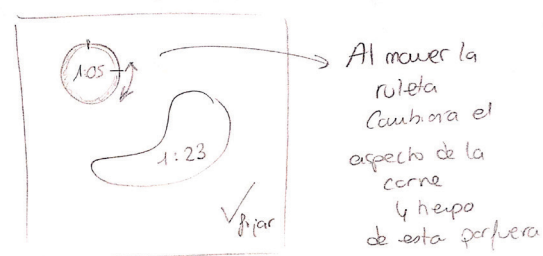 1:05
1:23
✓ fijar
Al mover la
ruleta
Cambiara el
aspecto de la
carne
y tiempo
de esta por fuera